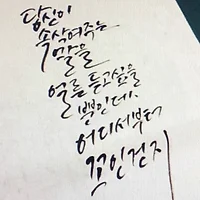 당신이
속삭여주는
말을
얼른 듣고싶을
뿐인데.
어디서부터
꼬인건지